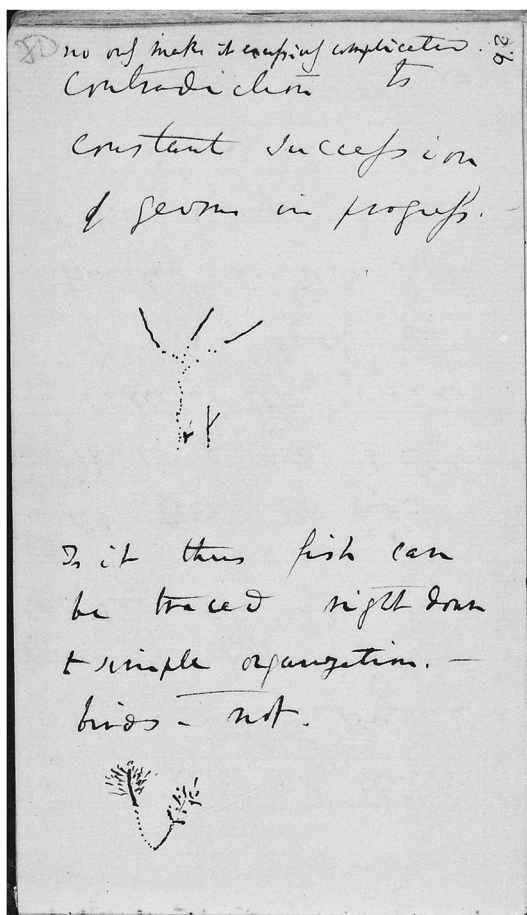 26
no only makes it excessively complicated.
Contradiction to
constant succession
of germs in progress.
Is it thus fish can
be traced right down
to simple organization. —
birds — not.